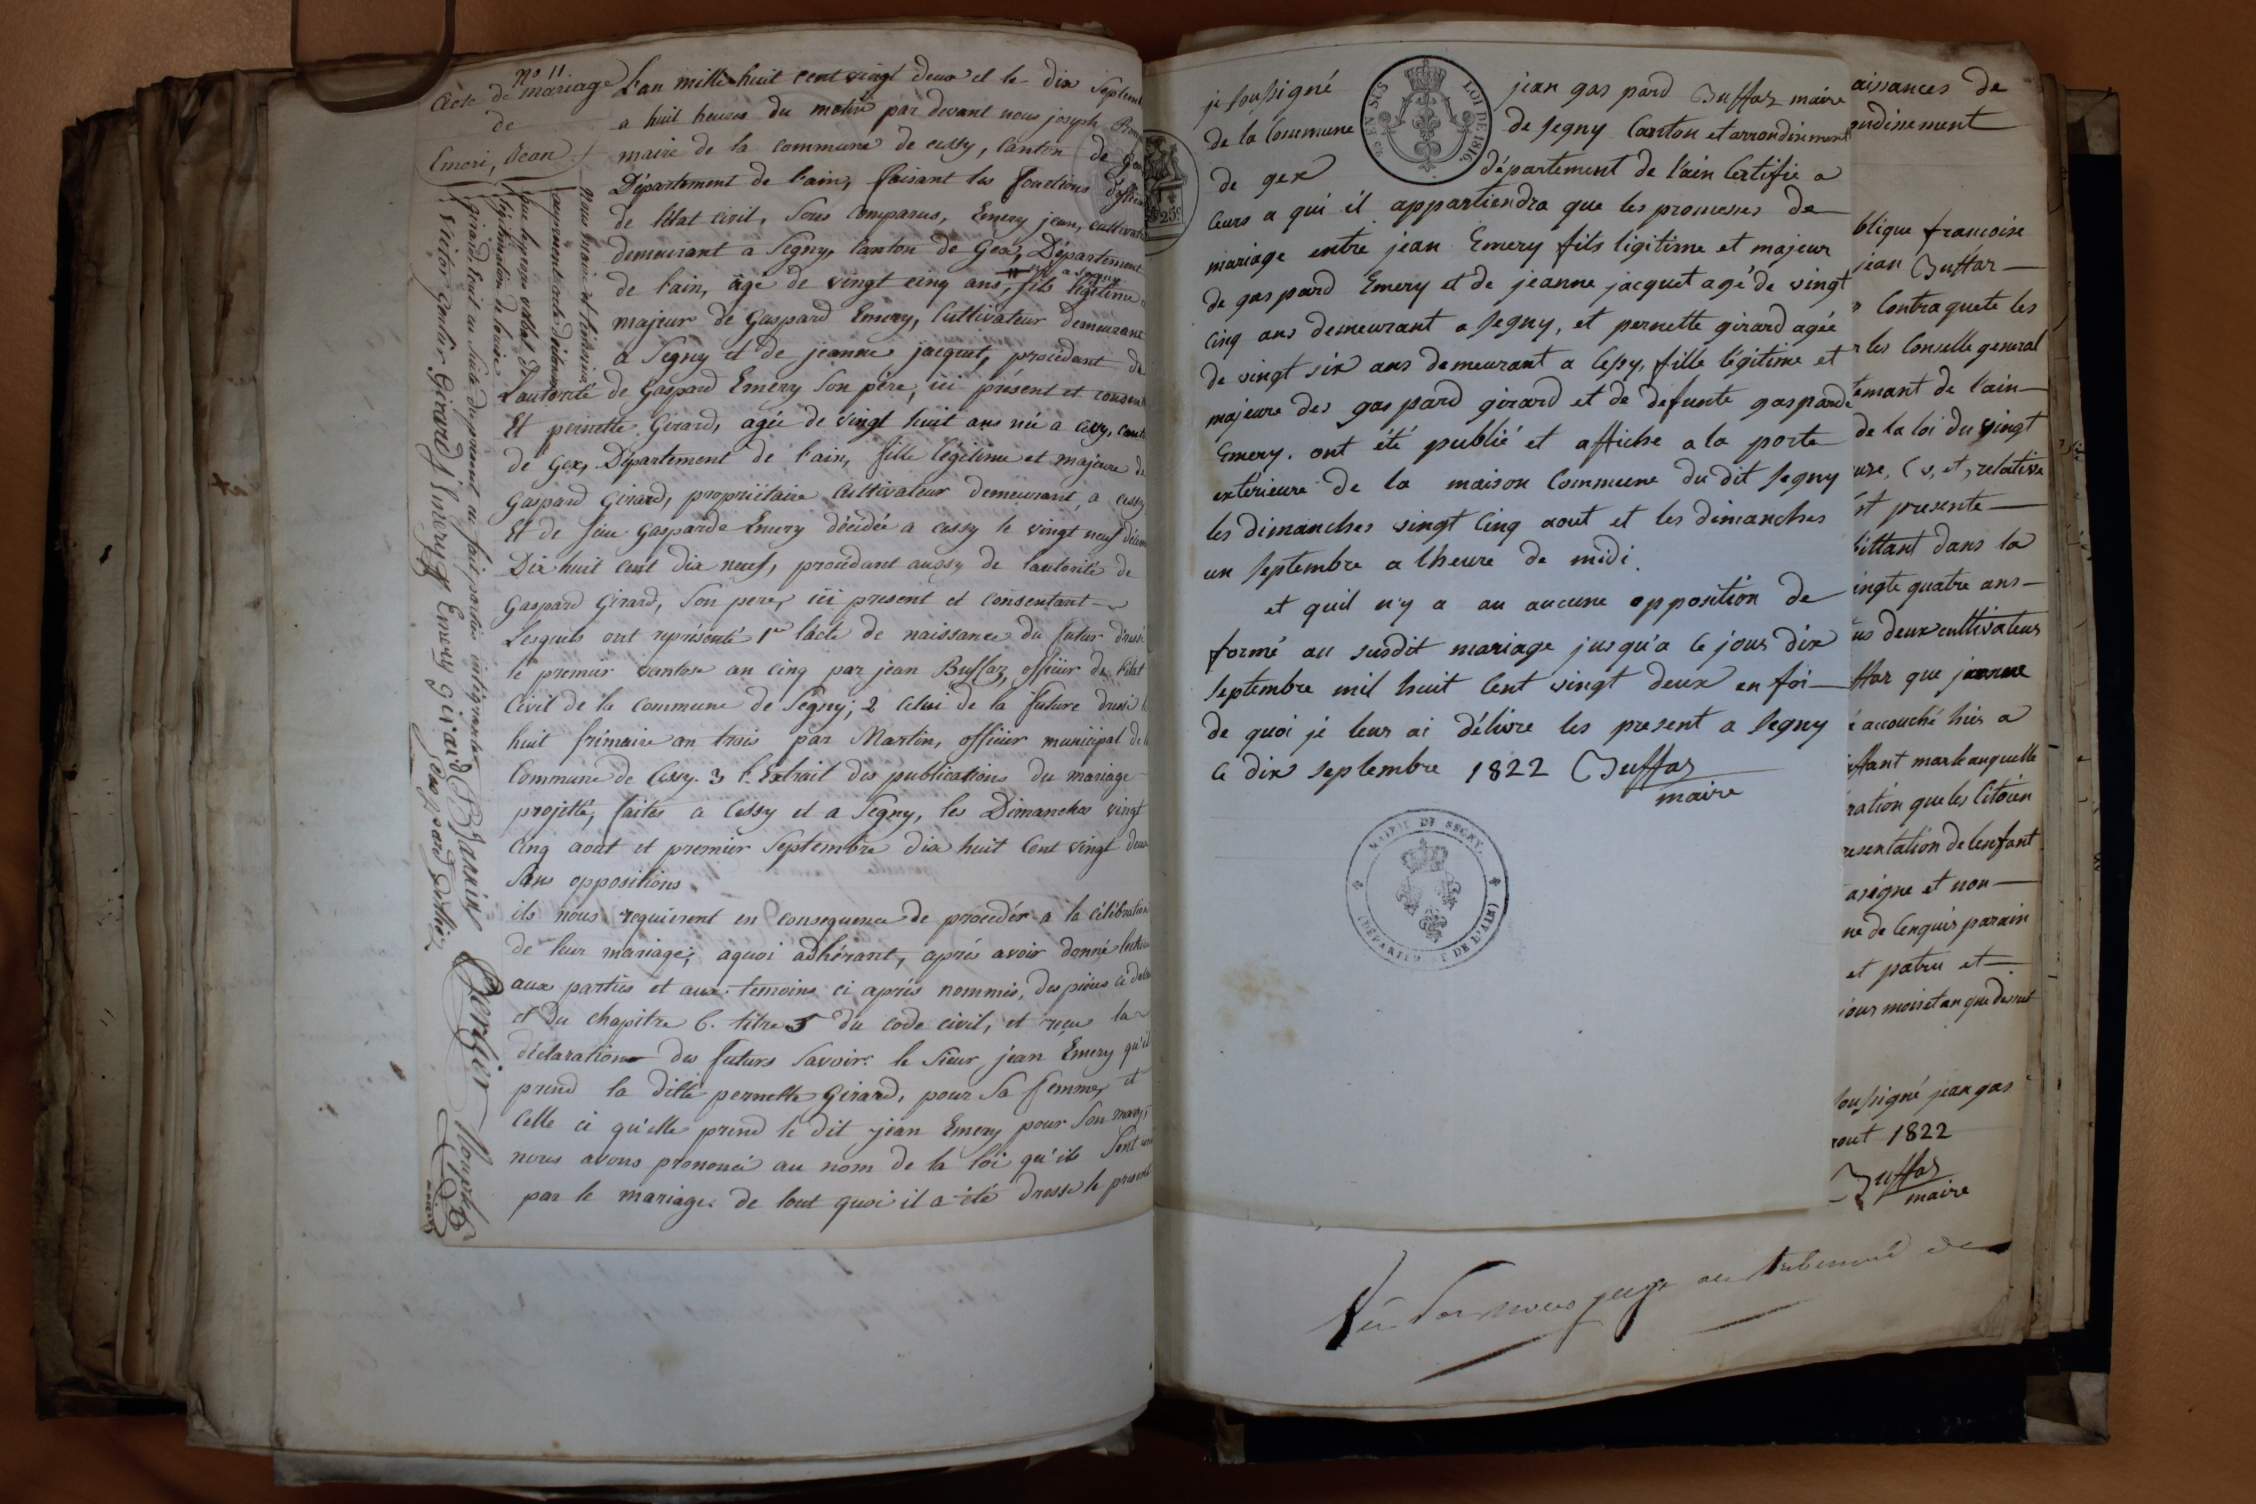 N° 11
Acte de mariage
de
Emeri, Jean
L'an mille huit cent vingt deux et le dix Septem
a huit heures du matin par devant nous joseph
maire de la commune de cessy, canton de Gex
Département de l'ain, faisant les fonctions d'officier
de l'état civil, sont comparus, Emery jean, cultivate
demeurant a Segny, canton de Gex, Département
né a segny
de l'ain, âgé de vingt cinq ans, fils légitime
majeur de Gaspard Emery, Cultivateur demeurant
a Segny et de jeanne jacquet, procédant de
L'autorité de Gaspard Emery son père, ici présent et consent
Et pernette Girard, agée de vingt huit ans née a cessy, canto
de Gex, Département de l'ain, fille légitime et majeure de
Gaspard Girard, propriétaire cultivateur demeurant, a cessy
Et de feue Gasparde Emery décédée a cessy le vingt neuf décem
Dix huit cent dix neuf, procédant aussy de l'autorité de
Gaspard Girard, son pere, ici present et consentant
Lesquels ont représenté 1er l'acte de naissance du futur dressé
le premier vantose an cinq par jean Buffaz, officier de l'état
Civil de la commune de Segny; 2 celui de la future dressé l
huit frimaire an trois par Martin, officier municipal de l
Commune de Cessy. 3 l'Extrait des publications du mariage
projetté, faites a Cessy et a Segny, les Dimanches vingt
Cinq aout et premier Septembre dix huit Cent vingt deux
sans oppositions
ils nous requierent en consequence de procéder a la célébration
de leur mariage; aquoi adhérant, après avoir donné lecture
aux parties et aux temoins ci après nommés, des pièces ci de
et du chapitre 6. titre 5 du code civil, et reçu la
déclaration des futurs savoir: le Sieur jean Emery qu'il
prend la ditte pernette Girard, pour sa femme, et
Celle ci qu'elle prend le dit jean Emery pour son mary;
nous avons prononcé au nom de la loi qu'ils sont uni
par le mariage. de tout quoi il a été dressé le present
Girard, le tout en suite du present en fait partie intégrante
Emery Girard
B Janin
Gaspard
je soussigné jean gaspard Buffaz maire
de la Commune de segny Canton et arrondisement
de gex département de l'ain Certifie a
Ceurs a qui il appartiendra que les promesses de
mariage entre jean Emery fils ligitime et majeur
de gaspard Emery et de jeanne jacquet agé de vingt
Cinq ans demeurant a segny, et pernette girard agée
de vingt six ans demeurant a Cessy, fille légitime et
majeure des gaspard girard et de defunte gasparde
Emery. ont été publié et affiche a la porte
exterieure de la maison Commune du dit segny
les dimanches vingt Cinq aout et les dimanches
un septembre a lheure de midi.
et quil n'y a au aucune opposition de
formé au susdit mariage jusqu'a ce jour dix
septembre mil huit Cent vingt deux en foi
de quoi je leur ai délivré les present a segny
ce dix septembre 1822 Buffaz
maire
LOI DE 1816.
MAIRIE DE SEGNY.
DE L'AIN
25c
aissances de
ondisement
blique francoise
jean Buffaz
Contraquete les
les Conselle general
temant de l'ain
de la loi du vingt
relative
st presente
bittant dans la
ingte quatre ans
us deux cultivateurs
ffaz que jeanne
accouché hier a
nfant marle auquelle
ration que les Citoien
resentation de lenfant
asigne et non
et
jour mois et an que dessus
soussigné jean gas
aout 1822
Buffaz
maire
Vu par nous juge au tribunal de